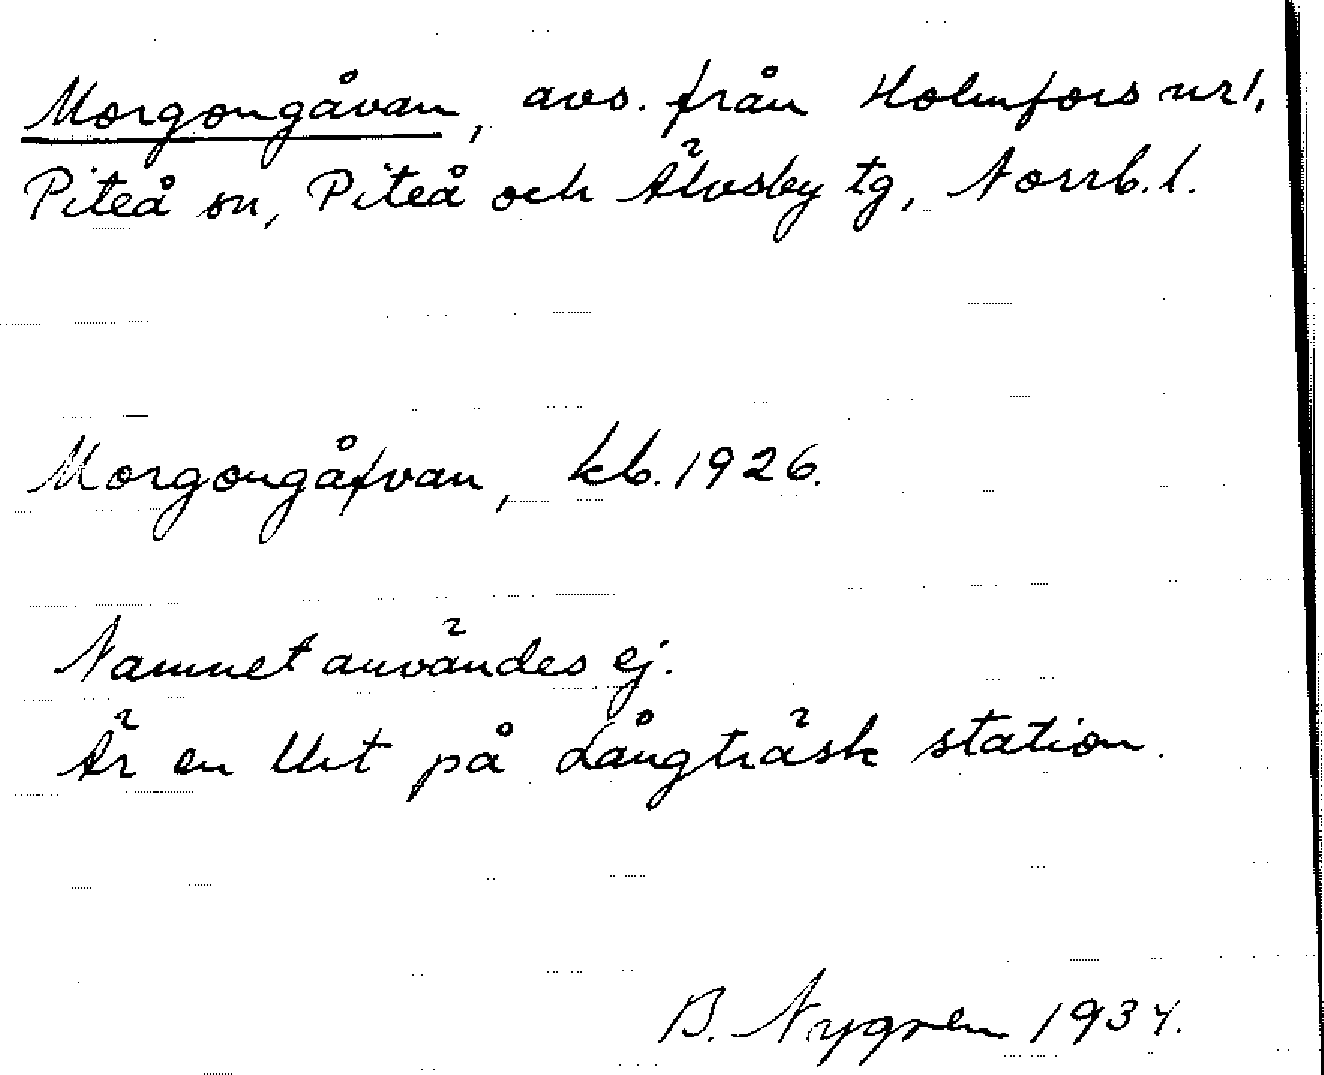 Morgongåvan, avs. från Holmfors nr 1,
Piteå sn, Piteå och Älvsby tg, Norrb. l.
Morgongåfvan, kb. 1926.
Namnet användes ej.
Är en Utt på Långträsk station.
B. Nygren 1934.